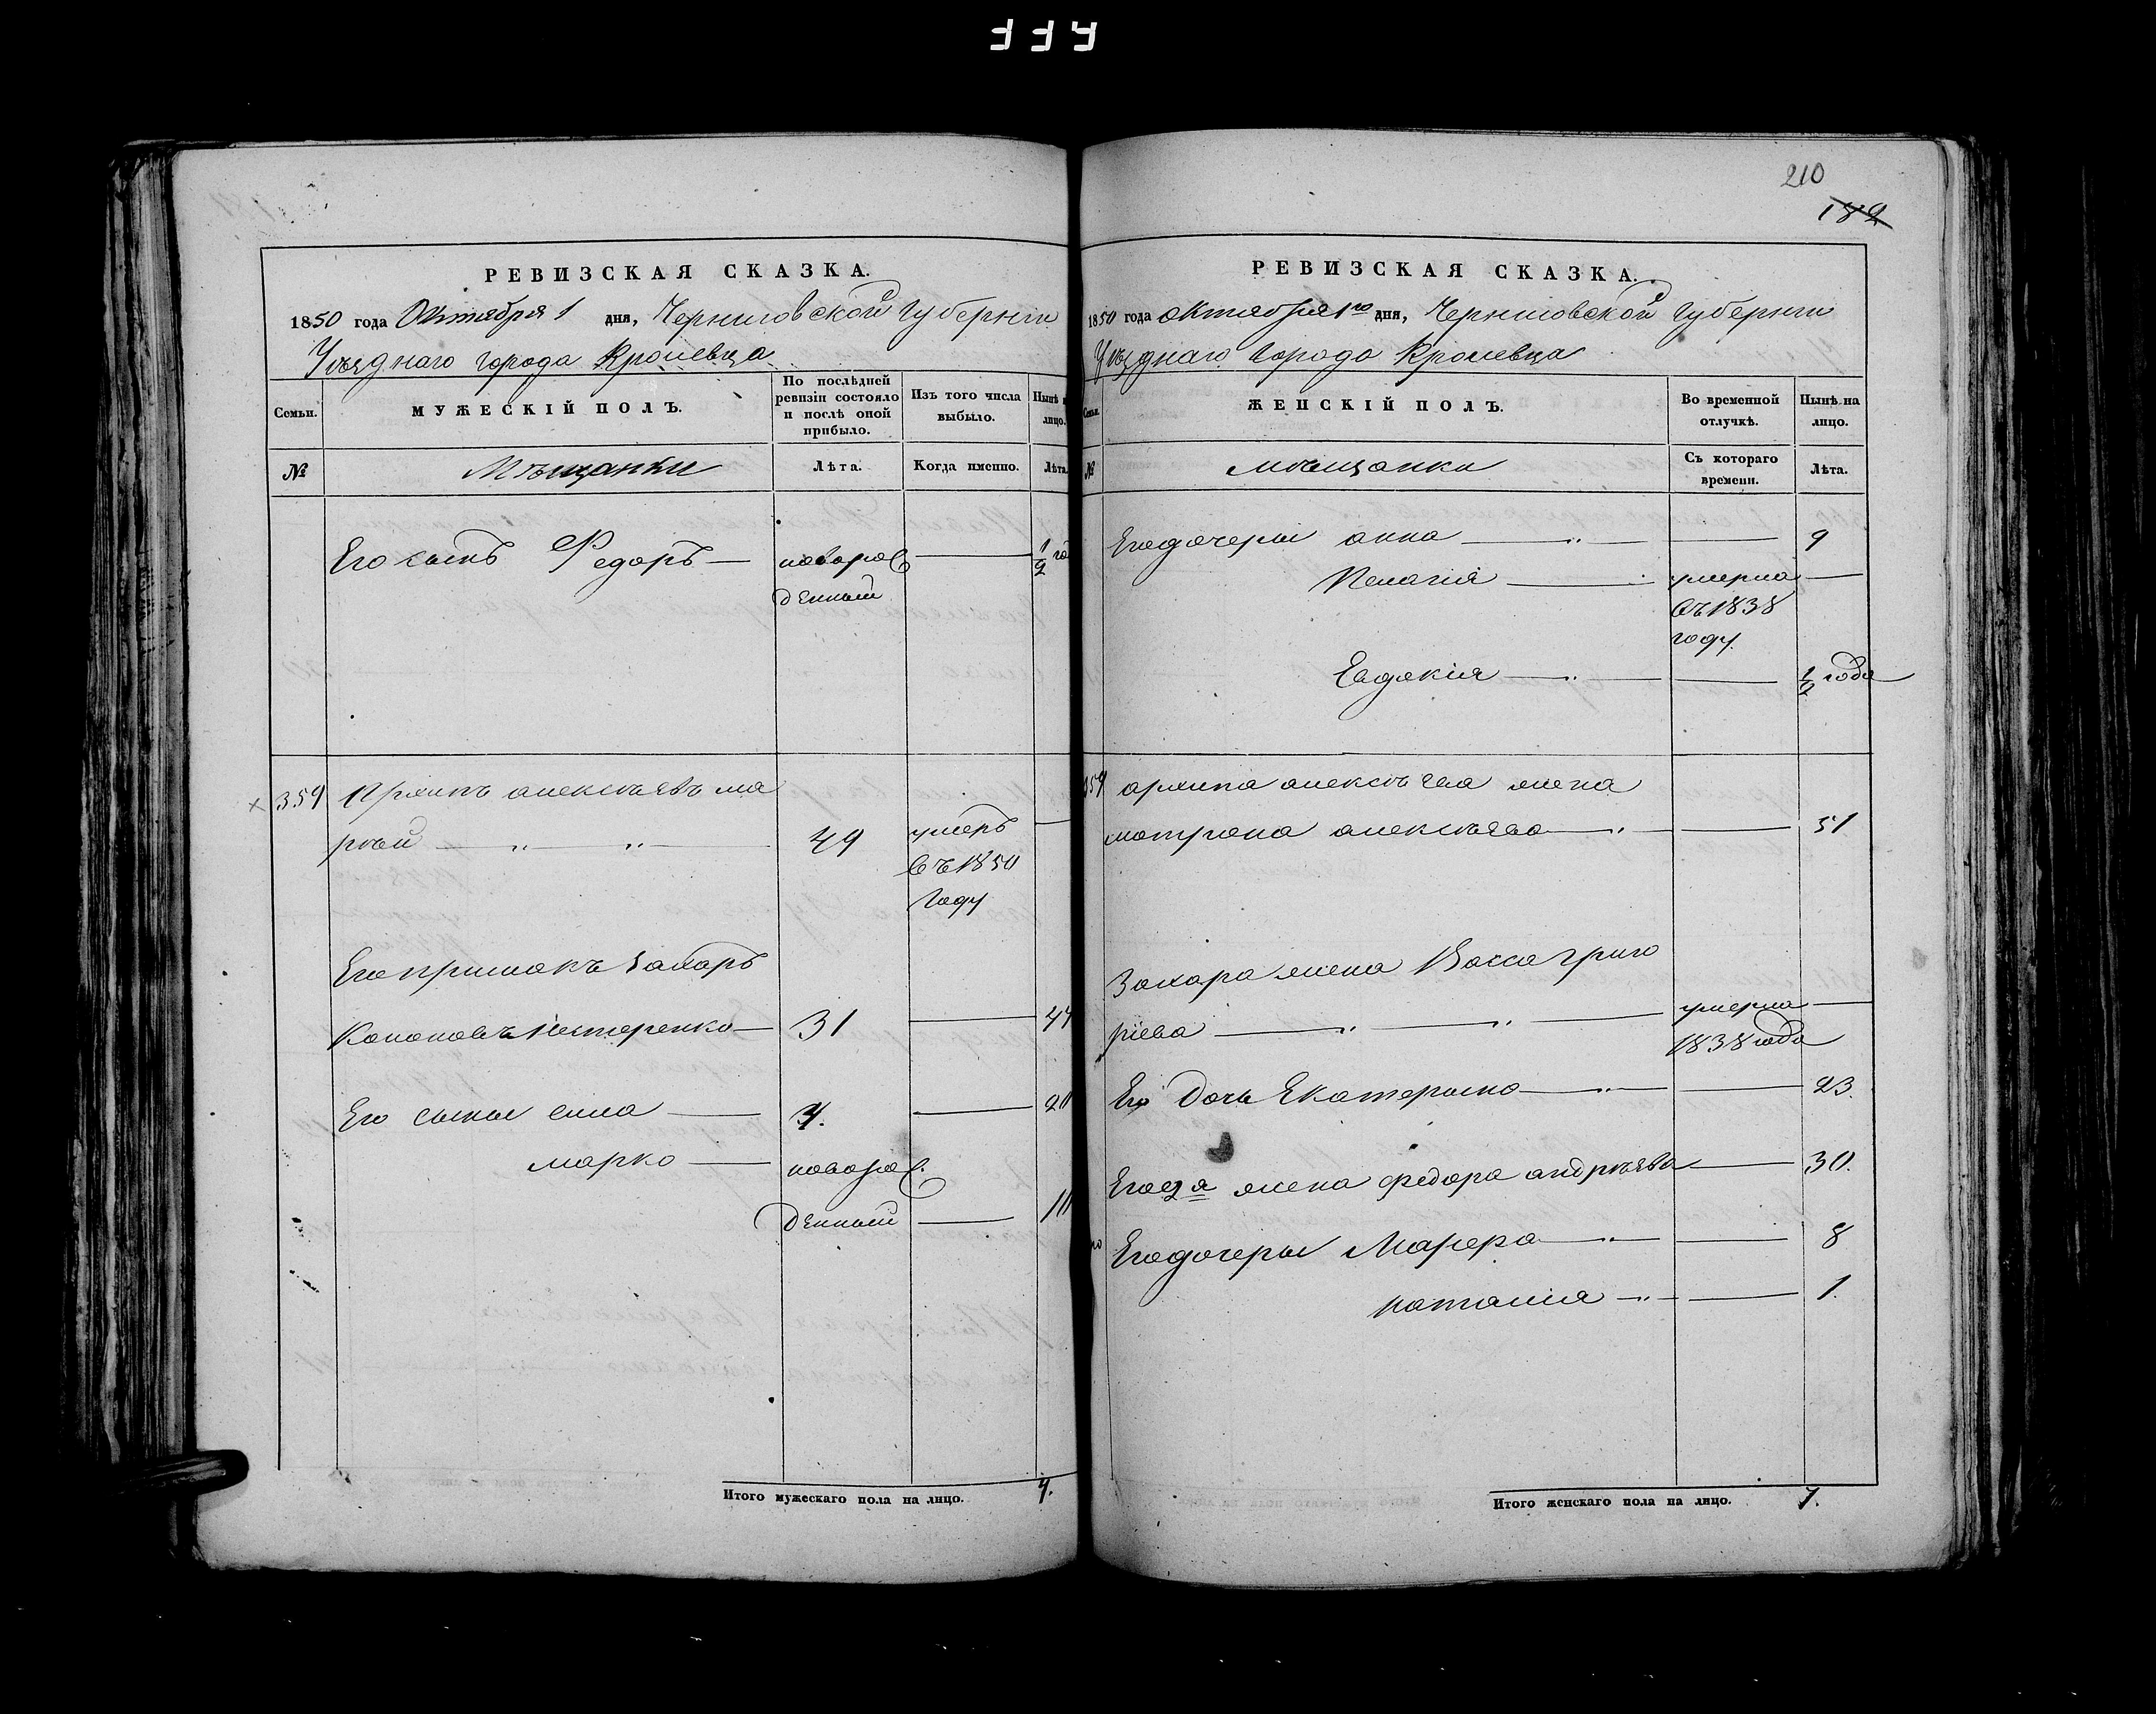 210
182
РЕВИЗСКАЯ СКАЗКА.
1850 года Октября 1 дня, Черниговской Губернїи
Уѣзднаго города Кролевца
Семьи.
МУЖЕСКІЙ ПОЛЪ.
По послѣдней ревизіи состояло и послѣ оной прибыло.
Изъ того числа выбыло.
Нынѣ на лицо.
№
Мѣщанъи
Лѣта.
Когда именно.
Лѣта.
Его сынъ Федоръ — новорож — 1/2 го
денный
359 Архипъ алексѣевъ ма
рчъй — 49 умеръ —
въ 1850
Году
Его примакъ Захаръ
Кононовъ Нестеренко — 31 — 44
Его сыны сила — 7. — 20
марко — новорож.
денный — 10
Итого мужескаго пола на лицо. 4.
РЕВИЗСКАЯ СКАЗКА.
1850 года октября 1го дня, Черниговской Губернїи
Уѣзднаго города Кролевца
Семьи.
ЖЕНСКІЙ ПОЛЪ.
Во временной отлучкѣ.
Нынѣ на лицо.
№
мѣщанки
Съ котораго времени.
Лѣта.
Его дочери анна — — 9
Пелагія — умерла —
въ 1838
году.
Евдокія — — 1/2 года
359 архипа алексѣева жена
матрона алексѣева — — 51
Захара жена Васса григо
ріева — умерла —
1838 года
Его дочь Екатерина — — 23.
Его 2я жена федора андрѣева — 30.
Его дочеры Марфа — — 8
наталія — — 1.
Итого женскаго пола на лицо. 7.